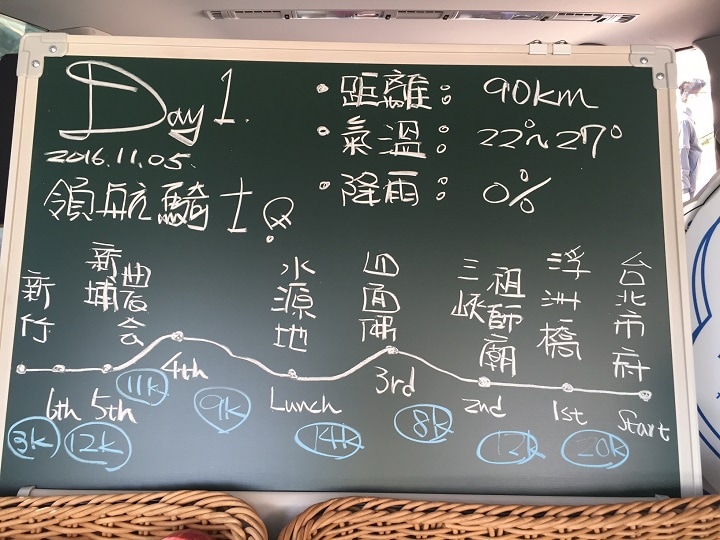 Day 1.
2016.11.05.
領航騎士
• 距離： 90km
• 氣溫： 22°~27°
• 降雨： 0%
新竹
新埔
農會
水源地
四面佛
三峽
祖師廟
浮洲橋
台北市府
6th
5th
4th
Lunch
3rd
2nd
1st
Start
3k
12k
11k
9k
14k
8k
13k
20k